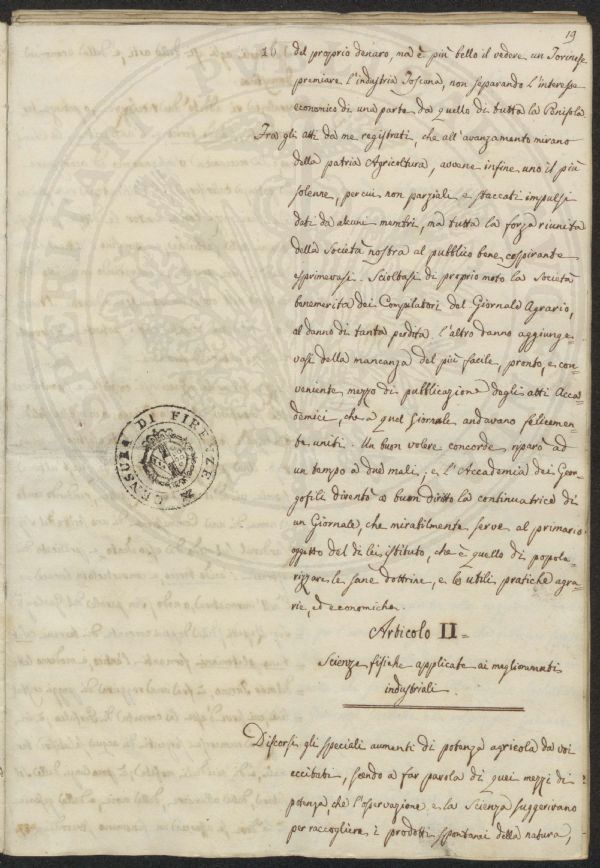 19
10. del proprio denaro, ma è più bello il vedere un Torinese
premiare l'industria Toscana, non separando l'interesse
economico di una parte da quello di tutta la Penisola.
Fra gli atti da me registrati, che all'avanzamento mirano
della patria Agricoltura, avvene infine uno il più
solenne, percui non parziali e staccati impulsi
dati da alcuni membri, ma tutta la forza riunita
della Società nostra al pubblico bene cospirante
esprimevasi. Scioltasi di proprio moto la Società
benemerita dei Compilatori del Giornale Agrario,
al danno di tanta perdita l'altro danno aggiunge-
vasi della mancanza del più facile, pronto, e con-
veniente mezzo di pubblicazione degli atti Acca-
demici, che a quel Giornale andavano felicemen-
te uniti. Un buon volere concorde riparò ad
un tempo a due mali, e l'Accademia dei Geor-
gofili diventò a buon diritto la continuatrice di
un Giornale, che mirabilmente serve al primario
oggetto del di lei istituto, che è quello di popola-
rizzare le sane dottrine, e le utili pratiche agra-
rie, ed economiche.
Articolo II =
Scienze fisiche applicate ai miglioramenti
industriali.
Discorsi gli speciali aumenti di potenza agricola da voi
eccitati, scendo a far parola di quei mezzi di
potenza, che l'osservazione e la Scienza suggerivano
per raccogliere i prodotti spontanei della natura,
CENSURA DI FIRENZE